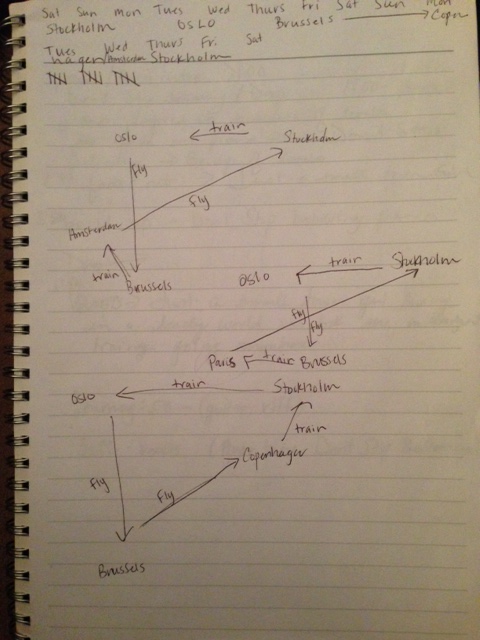 Sat Sun mon Tues Wed Thurs Fri Sat Sun Mon
Stockholm OSLO Brussels Copen
Tues Wed Thurs Fri Sat
hagen Amsterdam Stockholm
OSlo train Stockholm
fly
fly
Amsterdam
train
Brussels
OSlO train Stockholm
fly
fly
Paris train Brussels
OSlo train Stockholm
train
Copenhagen
fly fly
Brussels